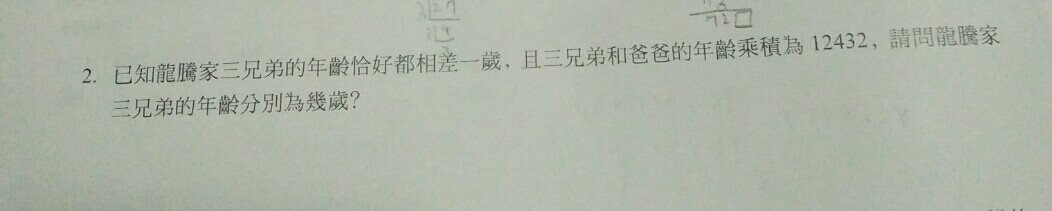 3 27
720
2. 已知龍騰家三兄弟的年齡恰好都相差一歲，且三兄弟和爸爸的年齡乘積為 12432，請問龍騰家
三兄弟的年齡分別為幾歲？